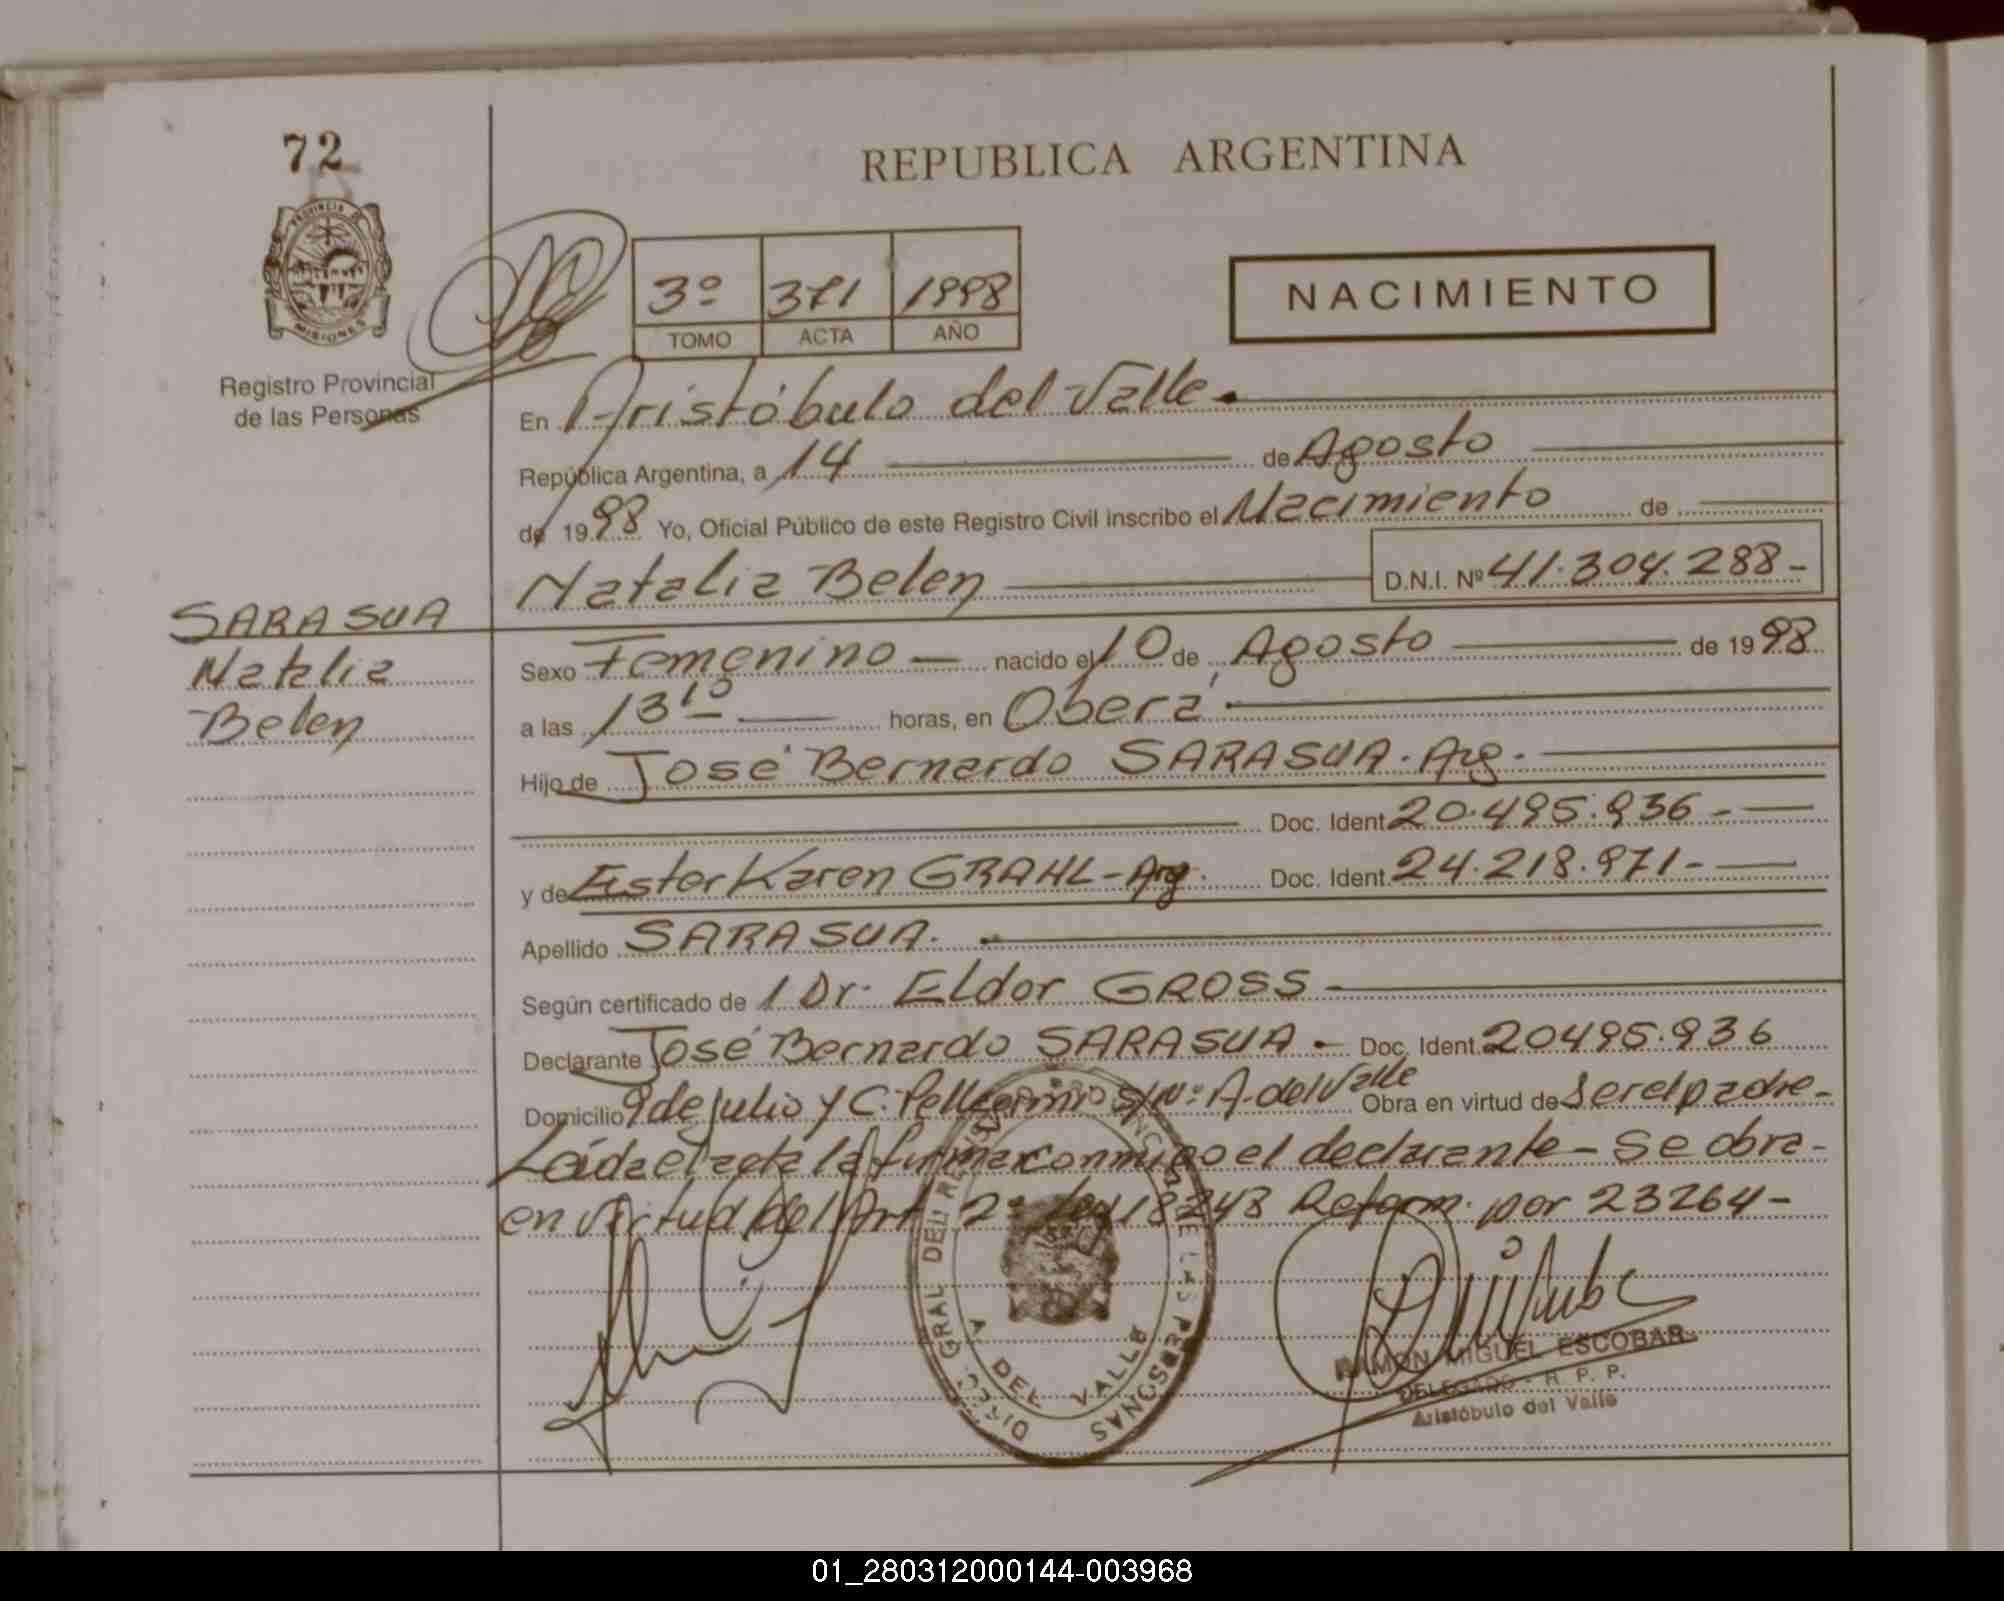 72
REPUBLICA ARGENTINA
PROVINCIA DE
MISIONES
Registro Provincial
de las Personas
3º 371 1998
TOMO ACTA AÑO
NACIMIENTO
En Aristóbulo del Valle.
República Argentina, a 14 de Agosto
de 1998 Yo, Oficial Público de este Registro Civil inscribo el Nacimiento de
Natalia Belen D.N.I. Nº 41.304.288-
SARASUA
Natalia
Belen
Sexo Femenino - nacido el 10 de Agosto de 1998
a las 13 10 horas, en Oberá
Hijo de José Bernardo SARASUA. Arg.
Doc. Ident. 20.495.936-
y de Ester Karen GRAHL - Arg. Doc. Ident. 24.218.971-
Apellido SARASUA.
Según certificado de 1 Dr. Eldor GROSS
Declarante José Bernardo SARASUA - Doc. Ident. 20495.936
Domicilio 9 de julio y C. Pellegrini s/Nº A. del Valle Obra en virtud de ser el padre-
Leída el acta la firma conmigo el declarante - Se obra-
en virtud del Art 2º Ley 18248 Reform. por 23264-
DIRECC. GRAL DEL REGISTRO PROVINCIAL DE LAS PERSONAS
A. DEL VALLE
RAMON MIGUEL ESCOBAR
DELEGADO - R. P. P.
Aristóbulo del Valle
01_280312000144-003968